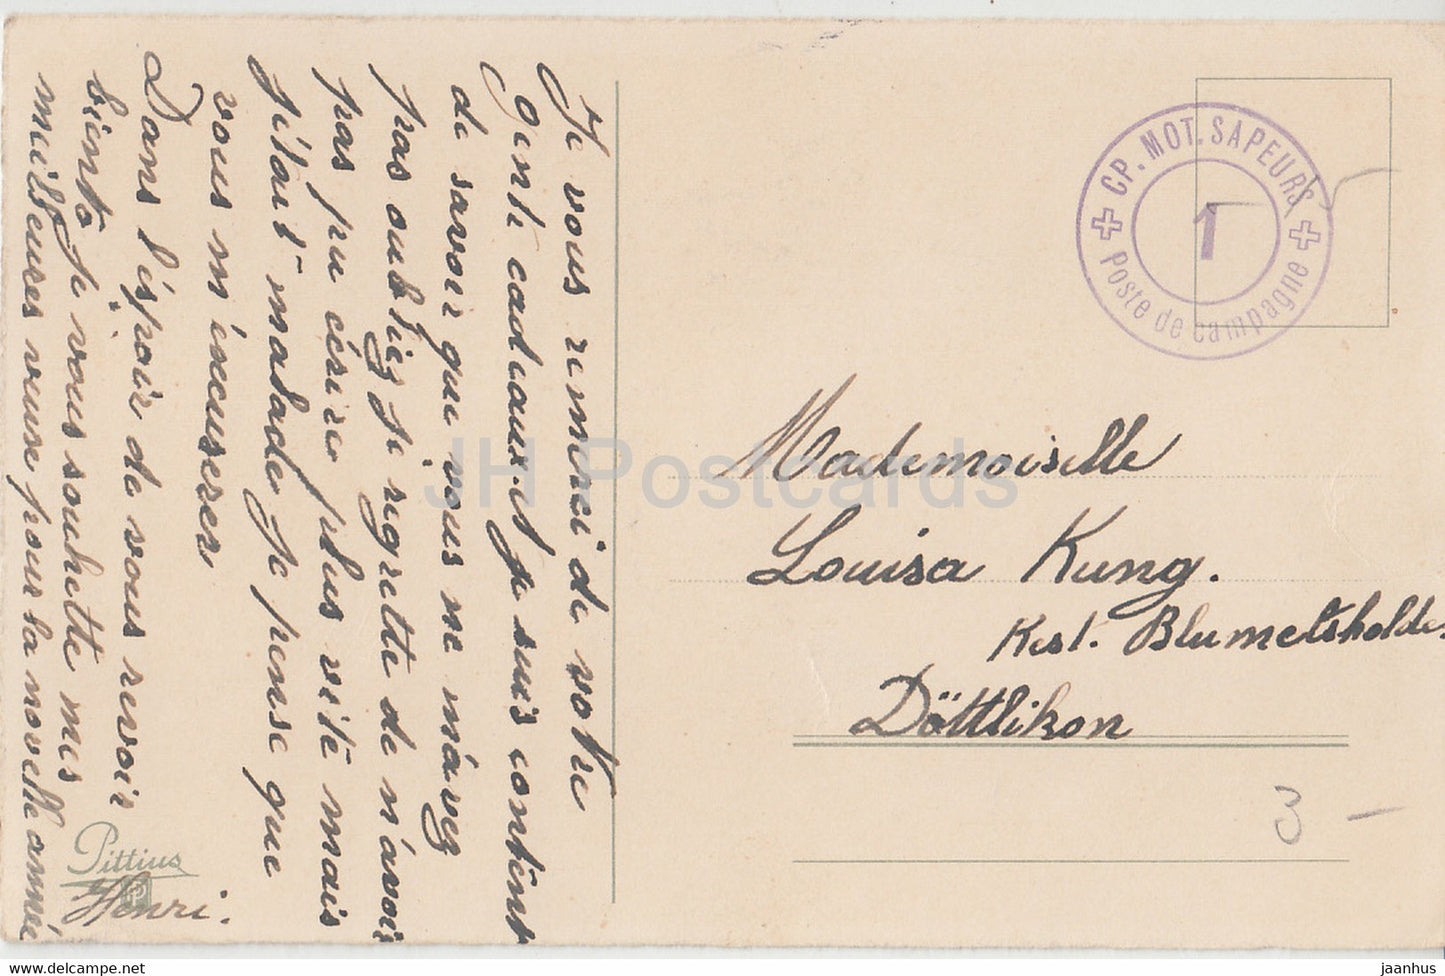 Je vous remerci de votre
genti cadeaux. et je suis contënt
de savoir que vous ne m'avez
pas oubliez je regrette de n'avoir
pas pu écrire plus vite mais
j'étais malade je pense que
vous m'éxcuserez
Dans l'éspoir de vous revoir
bientô je vous souhette mes
meilseures veuse pour la novelle année
Henri.
Pittius
CP. MOT. SAPEURS
1
Poste de campagne
Mademoiselle
Louisa Kung.
Rest. Blumetshalde
Döttlikon
JH Postcards
www.delcampe.net
jaanhus